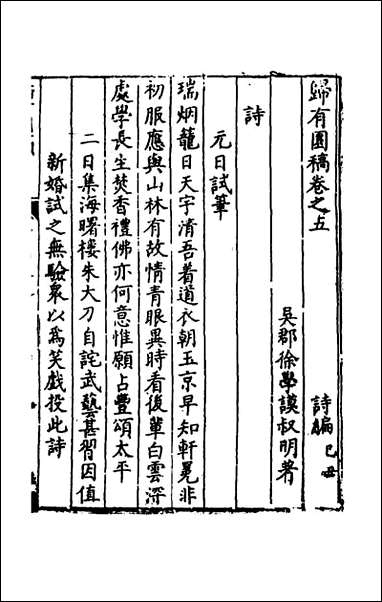 歸有園稿卷之五　詩編 己丑
吳郡徐學謨叔明著
詩
元日試筆
瑞烟籠日天宇清吾着道衣朝玉京早知軒冕非
初服應與山林有故情青眼異時看後輩白雲深
處學長生焚香禮佛亦何意惟願占豐頌太平
二日集海曙樓朱大刀自詫武藝甚習因值
新婚試之無驗衆以爲笑戲投此詩